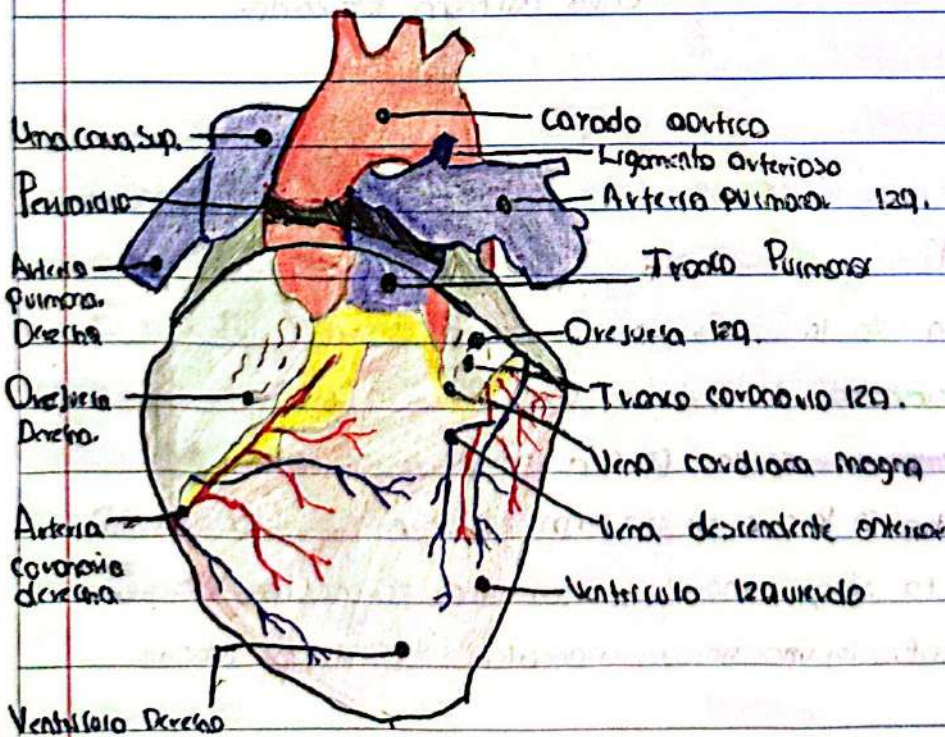 Vena cava sup.
Pericardio
Arteria
pulmonar
Derecha
Orejuela
Derecha.
Arteria
coronaria
derecha
Ventriculo Derecho
cayado aortico
Ligamento arterioso
Arteria pulmonar izq.
Tronco Pulmonar
Orejuela izq.
Tronco coronario izq.
Vena cardiaca magna
Vena descendente anterior
Ventriculo izquierdo